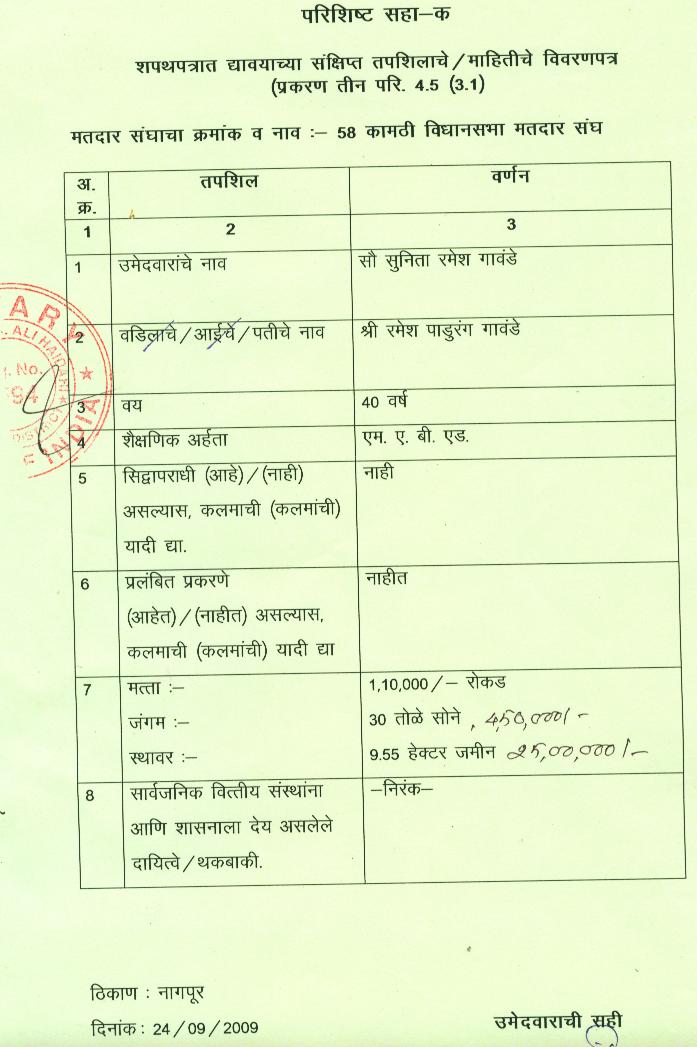 परिशिष्ट सहा–क
शपथपत्रात द्यावयाच्या संक्षिप्त तपशिलाचे/माहितीचे विवरणपत्र
(प्रकरण तीन परि. 4.5 (3.1)
मतदार संघाचा क्रमांक व नाव :– 58 कामठी विधानसभा मतदार संघ
अ. क्र. तपशिल वर्णन
1 2 3
1 उमेदवारांचे नाव सौ सुनिता रमेश गावंडे
2 वडिलाचे/आईचे/पतीचे नाव श्री रमेश पाडुरंग गावंडे
3 वय 40 वर्ष
4 शैक्षणिक अर्हता एम. ए. बी. एड.
5 सिद्वापराधी (आहे)/(नाही) नाही
असल्यास, कलमाची (कलमांची)
यादी द्या.
6 प्रलंबित प्रकरणे नाहीत
(आहेत)/(नाहीत) असल्यास,
कलमाची (कलमांची) यादी द्या
7 मत्ता :– 1,10,000/– रोकड
जंगम :– 30 तोळे सोने , 450,000/-
स्थावर :– 9.55 हेक्टर जमीन 25,00,000/-
8 सार्वजनिक वित्तीय संस्थांना –निरंक–
आणि शासनाला देय असलेले
दायित्वे/थकबाकी.
ARY
ALI HAIDARI
No.
94
DISTRICT
INDIA
ठिकाण : नागपूर
दिनांक: 24/09/2009 उमेदवाराची सही